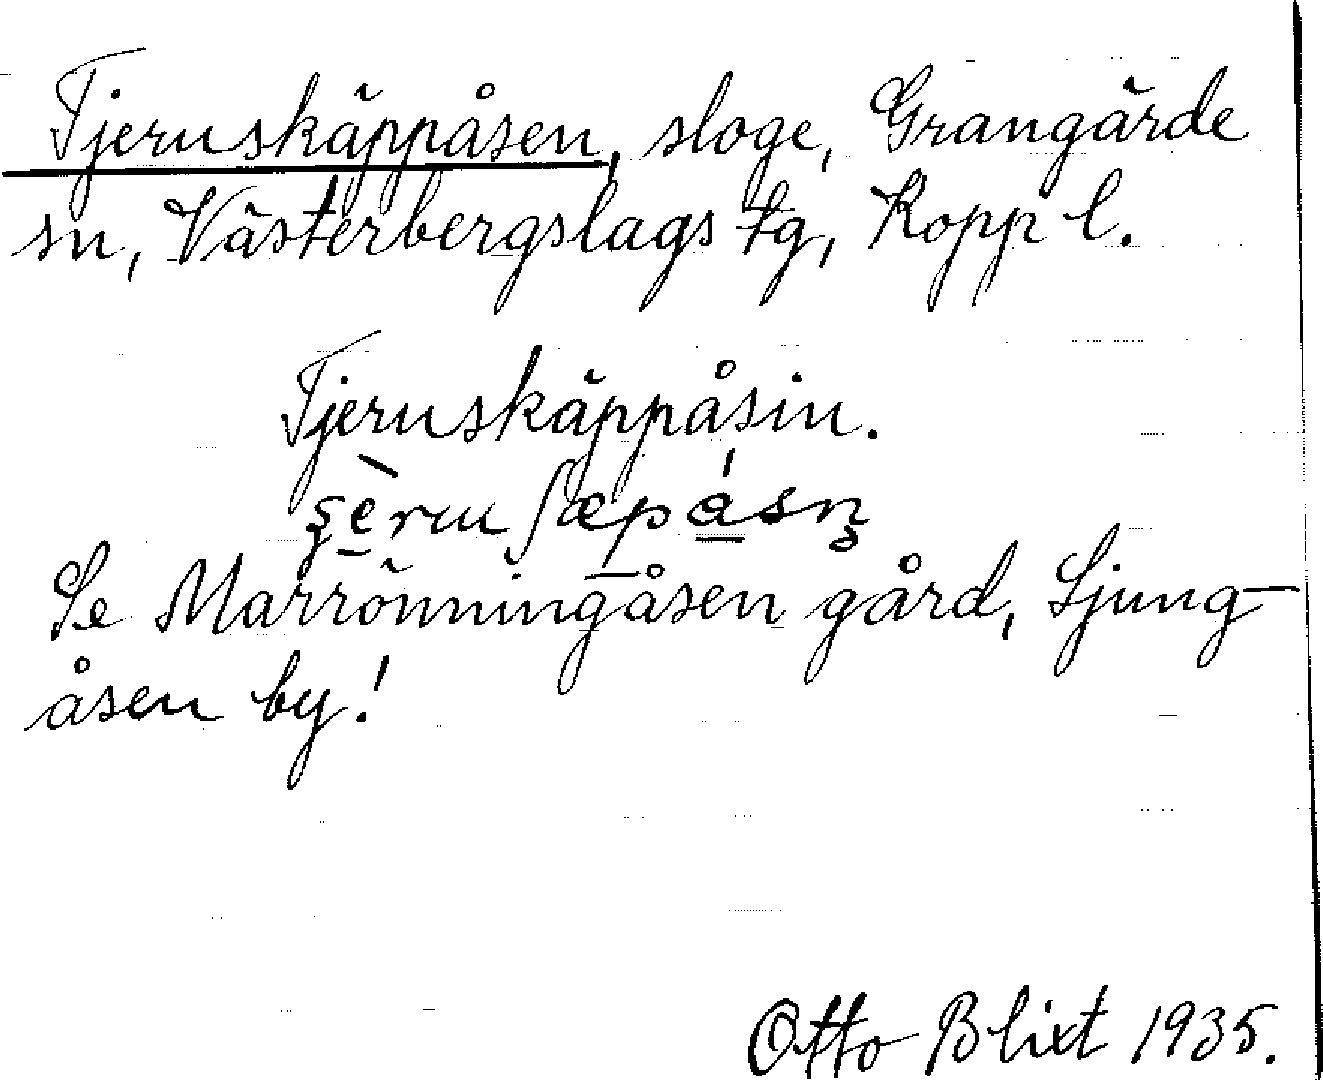 Tjernskäppåsen, sloge, Grangärde
sn, Västerbergslags tg, Kopp l.
Tjernskäppåsin.
Se Marrönningåsen gård, Ljung-
åsen by!
Otto Blixt 1935.